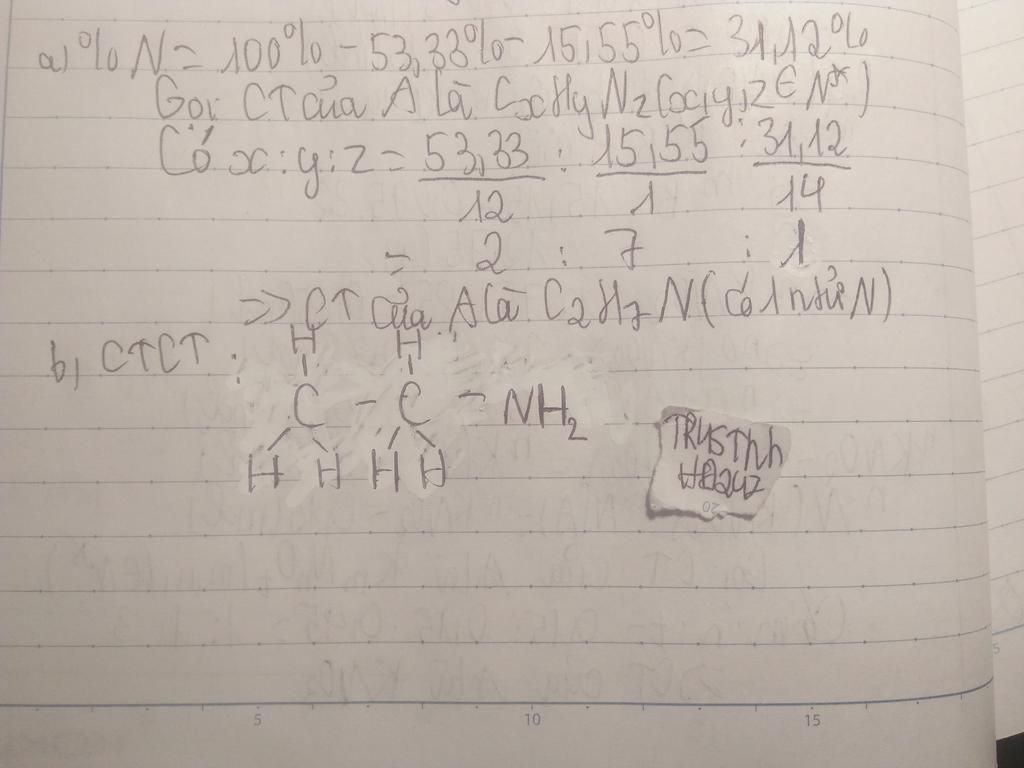 a) %N = 100% - 53,33% - 15,55% = 31,12%
Gọi CT của A là CxHyNz (x,y,z ∈ N*)
Có x : y : z = 53,33/12 : 15,55/1 : 31,12/14
= 2 : 7 : 1
=> CT của A là C2H7N (có 1 ntử N)
b, CTCT :
H H
C - C - NH2
H H H H
TRUSThh
20
5 10 15